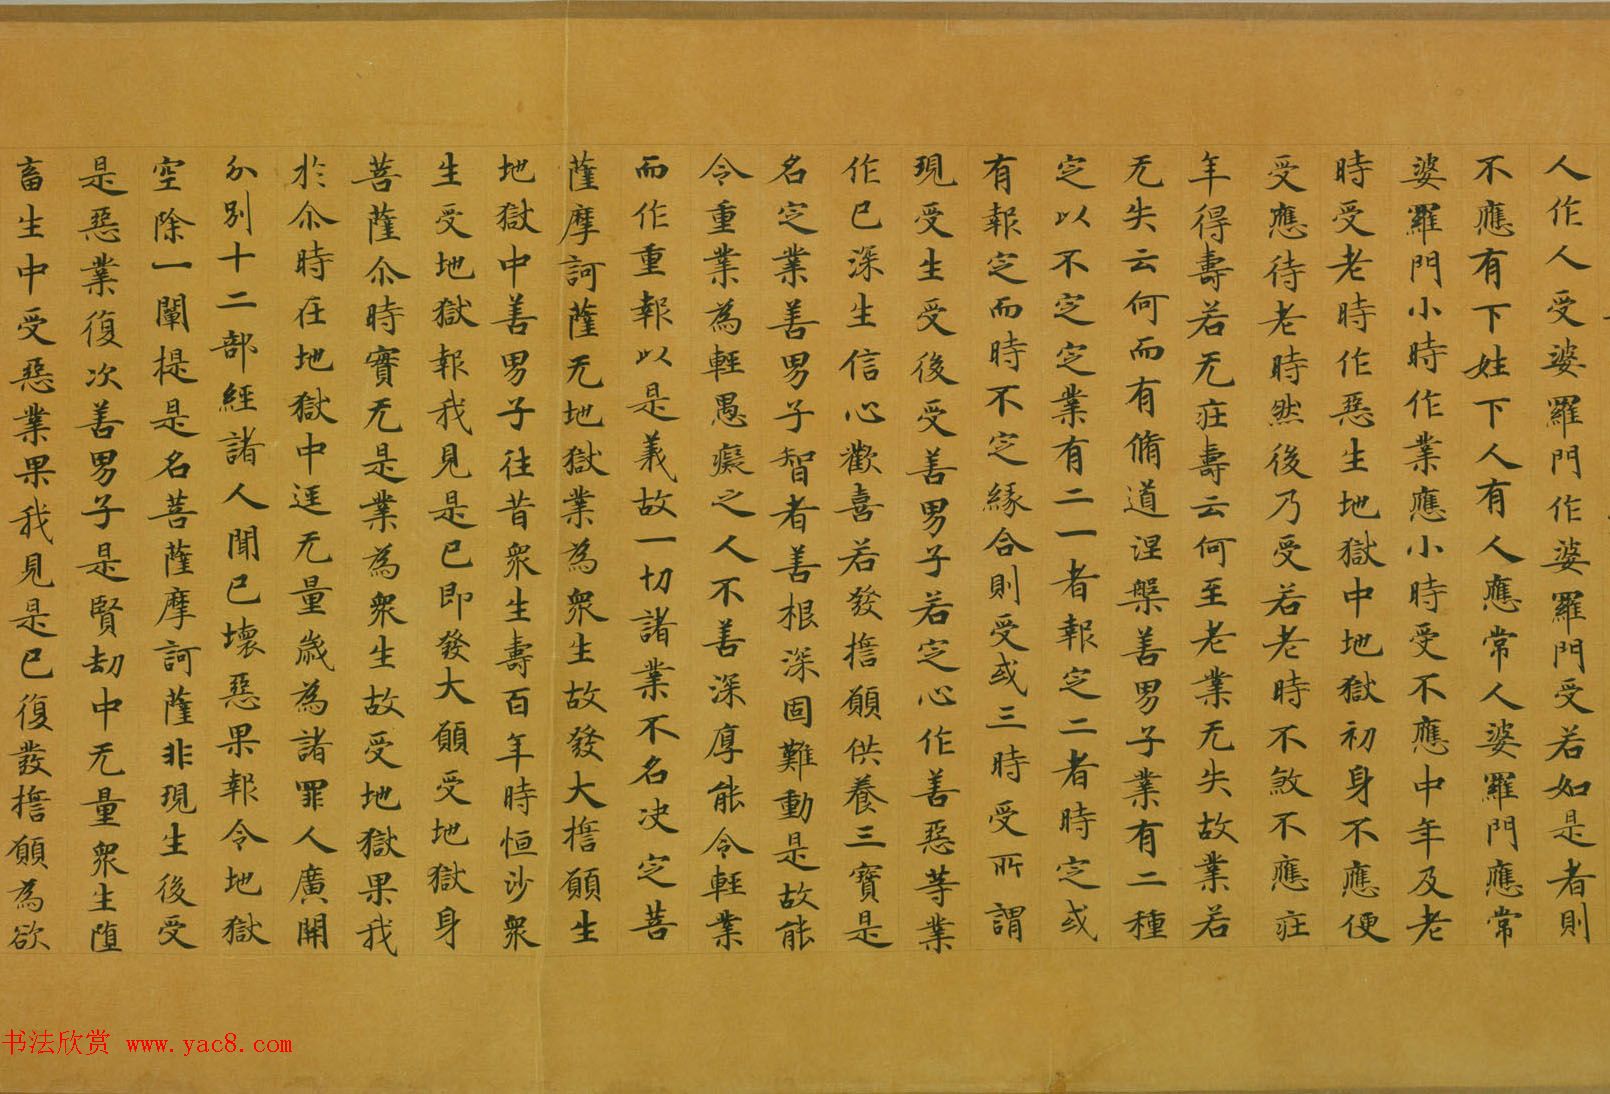 人作人受婆羅門作婆羅門受若如是者則
不應有下姓下人有人應常人婆羅門應常
婆羅門小時作業應小時受不應中年及老
時受老時作惡生地獄中地獄初身不應便
受應待老時然後乃受若老時不煞不應壯
年得壽若无壯壽云何至老業无失故業若
无失云何而有脩道涅槃善男子業有二種
定以不定定業有二一者報定二者時定或
有報定而時不定緣合則受或三時受所謂
現受生受後受善男子若定心作善惡等業
作已深生信心歡喜若發擔願供養三寶是
名定業善男子智者善根深固難動是故能
令重業為輕愚癡之人不善深厚能令輕業
而作重報以是義故一切諸業不名决定菩
薩摩訶薩无地獄業為衆生故發大擔願生
地獄中善男子往昔衆生壽百年時恒沙衆
生受地獄報我見是已即發大願受地獄身
菩薩尒時實无是業為衆生故受地獄果我
於尒時在地獄中逕无量歲為諸罪人廣開
分別十二部經諸人聞已壞惡果報令地獄
空除一闡提是名菩薩摩訶薩非現生後受
是惡業復次善男子是賢劫中无量衆生墮
畜生中受惡業果我見是已復發擔願為欲
书法欣赏 www.yac8.com